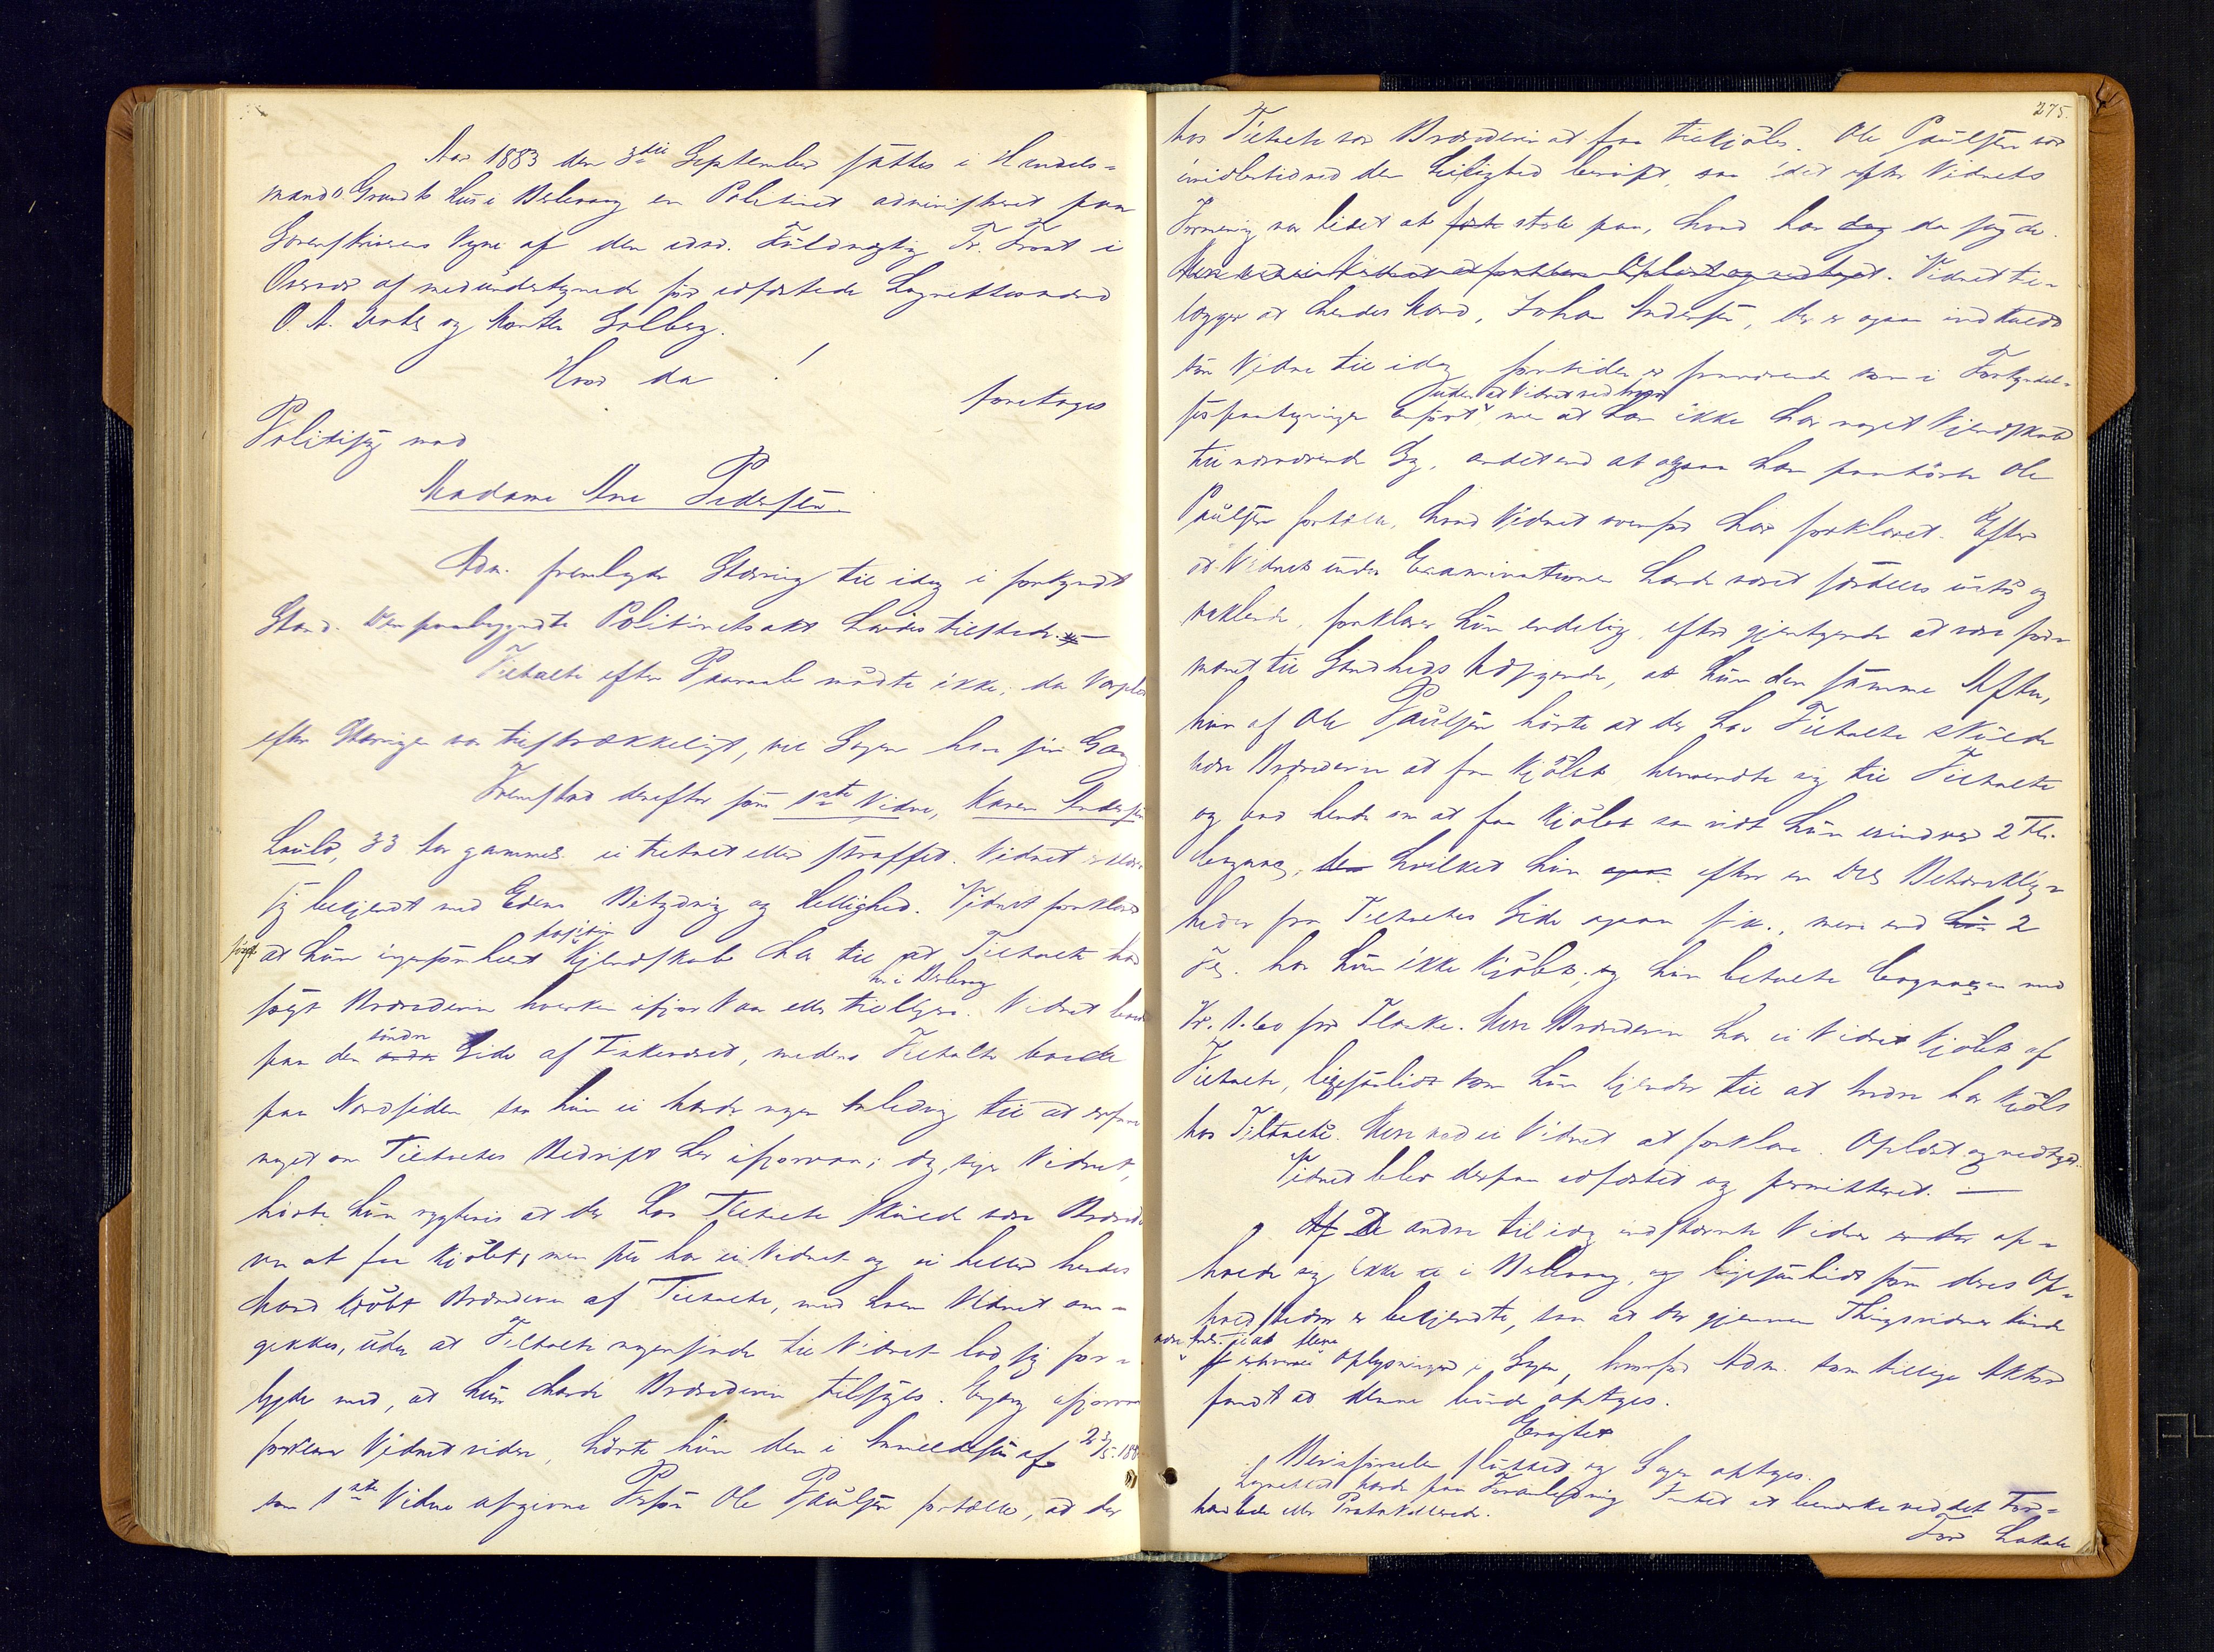 Aar 1883 den 3die September sattes i Handels=
mand Grundts Hus i Berlevaag en Politiret administreret paa
Sorenskriverens Vegne af den edsv. Fuldmægtig Fr. Front i
Overvær af medundertegnede før edfæstede Lagrettesmænd
O. A. og Morten Solberg.
Hvor da !
foretoges
Politisag mod
Madame Ane Pedersen
Adm. fremlagde Stævning til idag i forkyndt
Stand. Den paabegyndte Politiretsakt havdes tilstede.
Tiltalte efter Paaraab mødte ikke; da Varslet
efter Stævningen var tilstrækkeligt, vil Sagen have sin Gang
Fremstod derefter som 1ste Vidne, Karen Andersen
Lauld, 33 Aar gammel ei tiltalt eller straffet. Vidnet erklærer
sig bekjendt med Edens Betydning og Hellighed. Vidnet forklarer
positiv
at hun ingensomhelst Kjendskab har til at Tiltalte har
her i Berlevaag
solgt Brændeviin hverken ifjor Vaar eller tidligere. Vidnet boede
søndre
paa den andre Side af Fiskeværet, medens Tiltalte boede
paa Nordsiden saa hun ei havde nogen Anledning til at erfare
noget om Tiltaltes Bedrift her ifjorvaar; dog, siger Vidnet,
hørte hun rygtevis at der hos Tiltalte skulde være Brændevi
vin at faa kjøbt, men selv har ei Vidnet og ei heller hendes
Mand kjøbt Brændeviin af Tiltalte, med hvem Vidnet om=
gikkes, uden at Tiltalte nogensinde til Vidnet lod sig for=
lyde med, at hun havde Brændeviin tilsalgs. Engang ifjorvaar
forklarer Vidnet videre, hørte hun den i Anmeldelsen af 23/5 188
som 1ste Vidne opgivne Person Ole Paulsen fortælle, at der
275.
hos Tiltalte var Brændeviin at faa tilkjøbs. Ole Paulsen var
imidlertid ved den Leilighed beruset, saa det efter Vidnets
Formening var lidet at stole paa, hvad han da sagde.
Vidnet til=
lægger at hendes Mand, Johan Andersen, der er ogsaa indkaldt
som Vidne til idag fortiden er fraværende som i Forkyndel=
uden at Vidnet ved hvor
sespaategningen anført, men at han ikke har noget Kjendskab
til nærværende Sag, andet end at ogsaa han paahørte Ole
Paulsen fortælle, hvad Vidnet ovenfor har forklaret. Efter
at Vidnet under Examinationen havde været særdeles usikker og
vaklende, forklarer hun endelig, efter gjentagende at være for=
manet til Sandheds Udsigende, at hun den samme Aften,
hun af Ole Paulsen hørte at der hos Tiltalte skulde
være Brændeviin at faa kjøbt, henvendte sig til Tiltalte
og bad hende om at faa kjøbt saa vidt hun erindrer 2 Fl.
Cognac, hvilket hun efter en Del Betænkelig=
heder fra Tiltaltes Side ogsaa fik, mere end 2
Fl. har hun ikke kjøbt, og hun betalte Cognacen med
Kr. 1.60 pr Flaske. Men Brændeviin har ei Vidnet kjøbt af
Tiltalte, ligesaalidt som hun kjender til at Andre har kjøbt
hos Tiltalte. Mere ved ei Vidnet at forklare. Oplæst og vedtaget.
Vidnet blev derpaa edfæstet og permitteret. —
De andre til idag indstævnte Vidner op=
holde sig ikke i Berlevaag, og ligesaalidt som deres Op=
holdssteder er bekjendte, saa at der gjennem Thingsvidner kunde
flere
Oplysninger i Sagen, hvorfor Adm. som tillige Aktor
fandt at denne burde optages.
Eragtet
Bevisførselen sluttet og Sagen optages.
Lagrettet havde paa Foranledning Intet at bemærke ved det For=
handlede eller Protokollerede.
Fred Lakaln